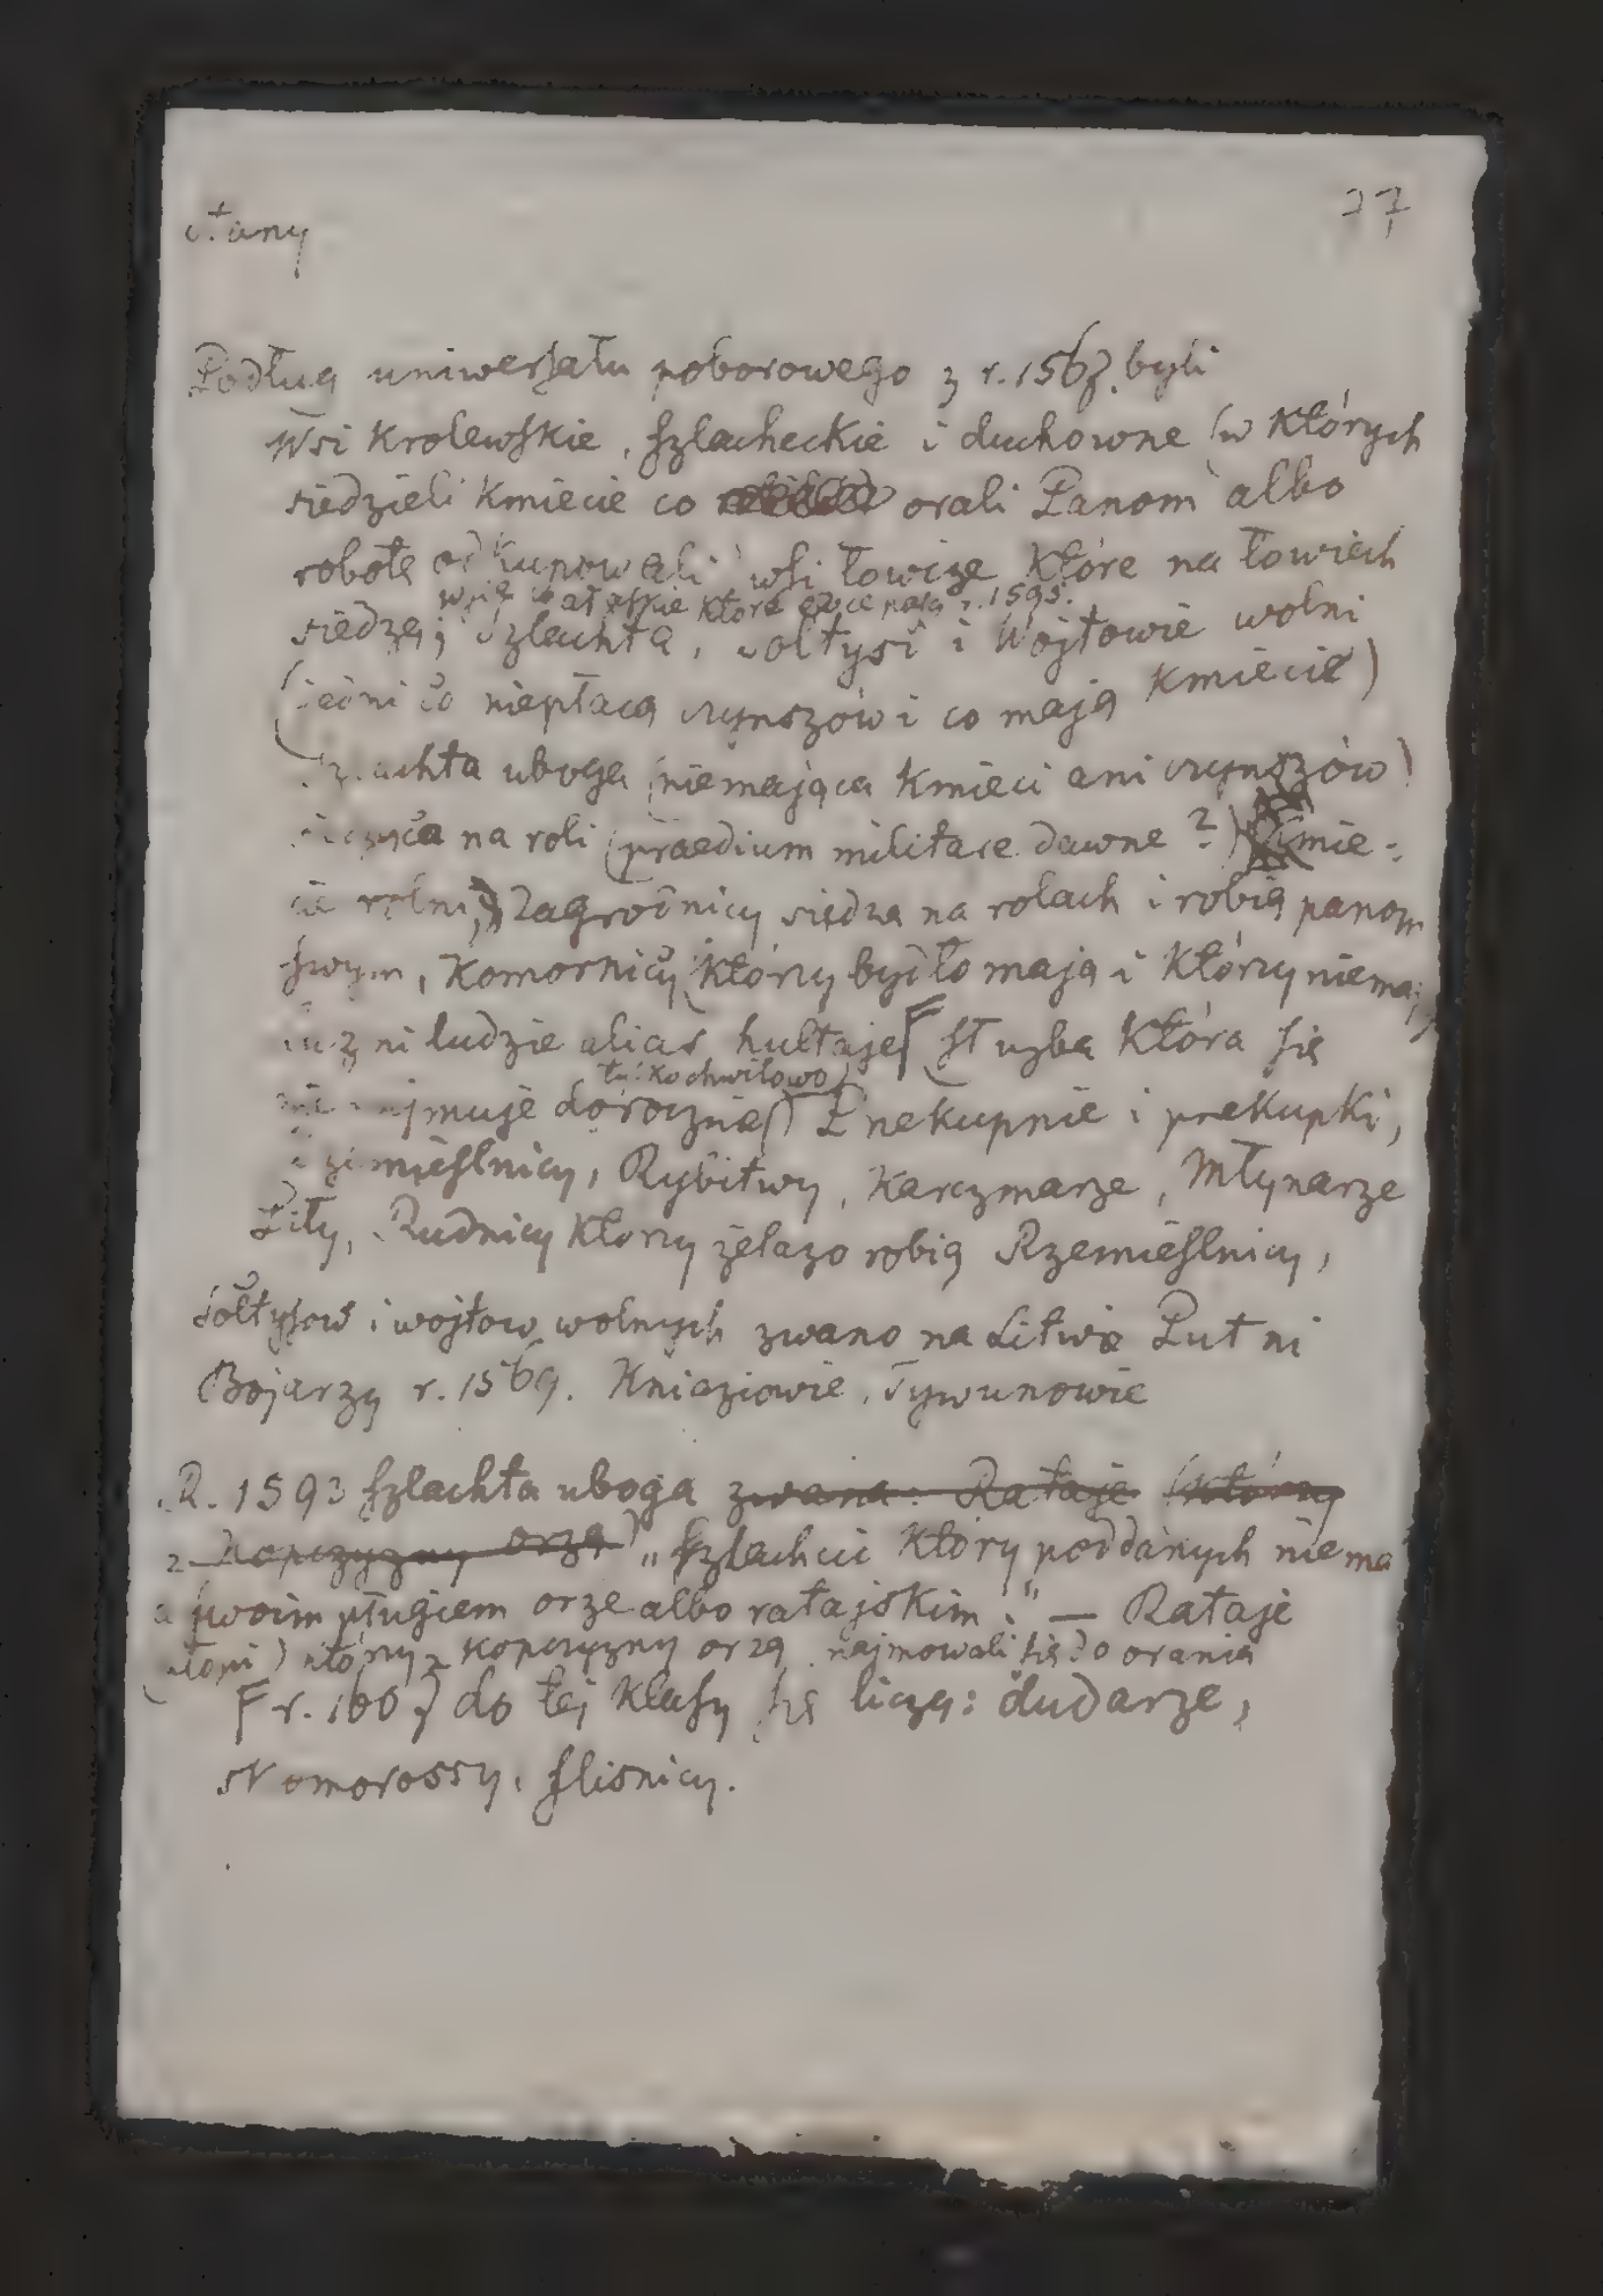 Stany
77
Podług uniwersału poborowego z r. 1567. byli
Wsi Krolewskie, szlacheckie i duchowne (w których
siedzieli Kmiecie co orali Panom albo
robotę odkupowali) wsi łowcze które na łowiech
wsie wałaskie które owce pasą r. 1595.
siedzą; Szlachta, Sołtysi i Wojtowie wolni
(jedni co niepłacą czynszów i co mają Kmiecie)
Szlachta uboga (niemająca Kmieci ani czynszów)
na roli (praedium militare dawne?) Kmie-
cie rolni, Zagrodnicy siedzą na rolach i robią panom
swym, Komornicy (którzy bydło mają i którzy niemają
luzni ludzie alias hultaje F (służba która się
tylko chwilowo
nie najmuje dorocznie) Przekupnie i przekupki,
rzemieslnicy, Rybitwy, Karczmarze, Młynarze
Piły, Rudnicy którzy żelazo robią Rzemieslnicy,
Sołtysow i wojtow wolnych zwano na Litwie Putni
Bojarzy r. 1569. Kniaziowie, Tywunowie
R. 1593 szlachta uboga zwana: Rataje (którzy
z kopczyzny orzą) "szlachcic który poddanych niema
a swoim pługiem orze albo ratajskim." — Rataje
(chłopi) którzy z kopczyzny orzą najmowali się do orania
F r. 1607 do tej klasy się liczą: dudarze,
skomorossy, flisnicy.